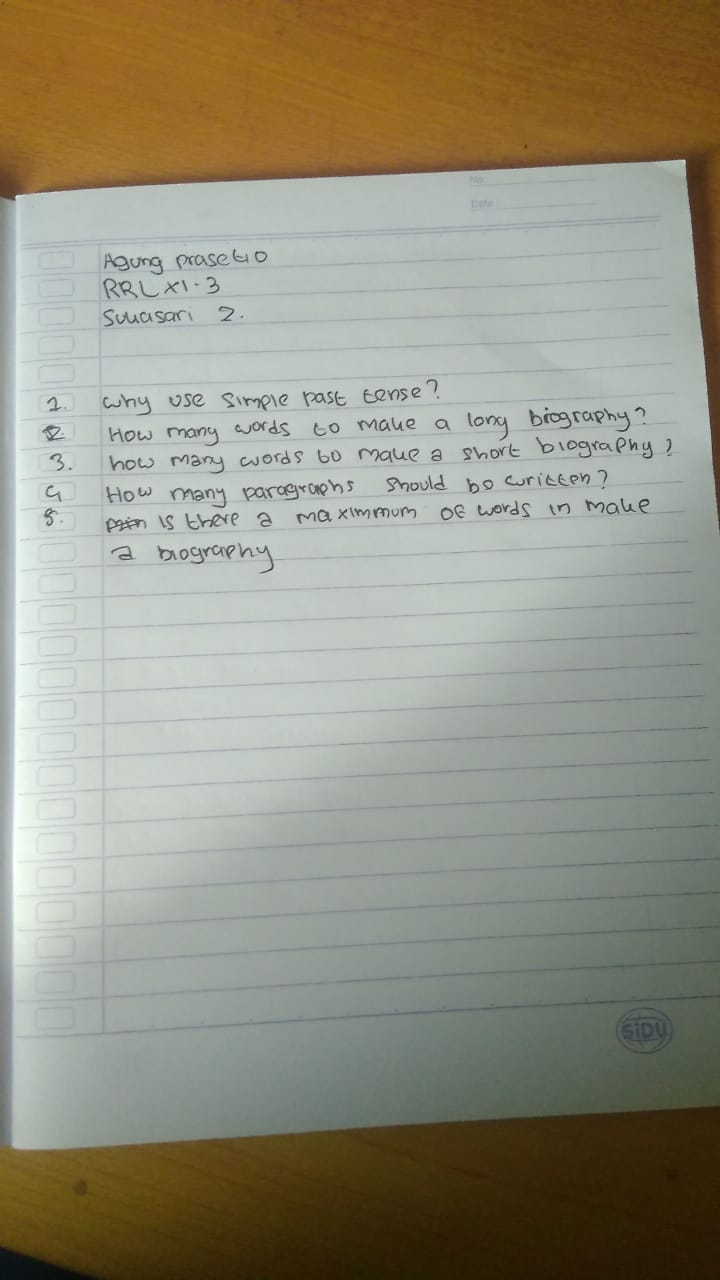 No.
Date :
Agung prasetio
RRL XI-3
Suuasari 2.
1. why use simple past tense?
2 How many words to make a long biography?
3. how many words to make a short biography?
4 How many paragraphs should be written?
5. is there a maximmum of words in make
a biography
SiDU